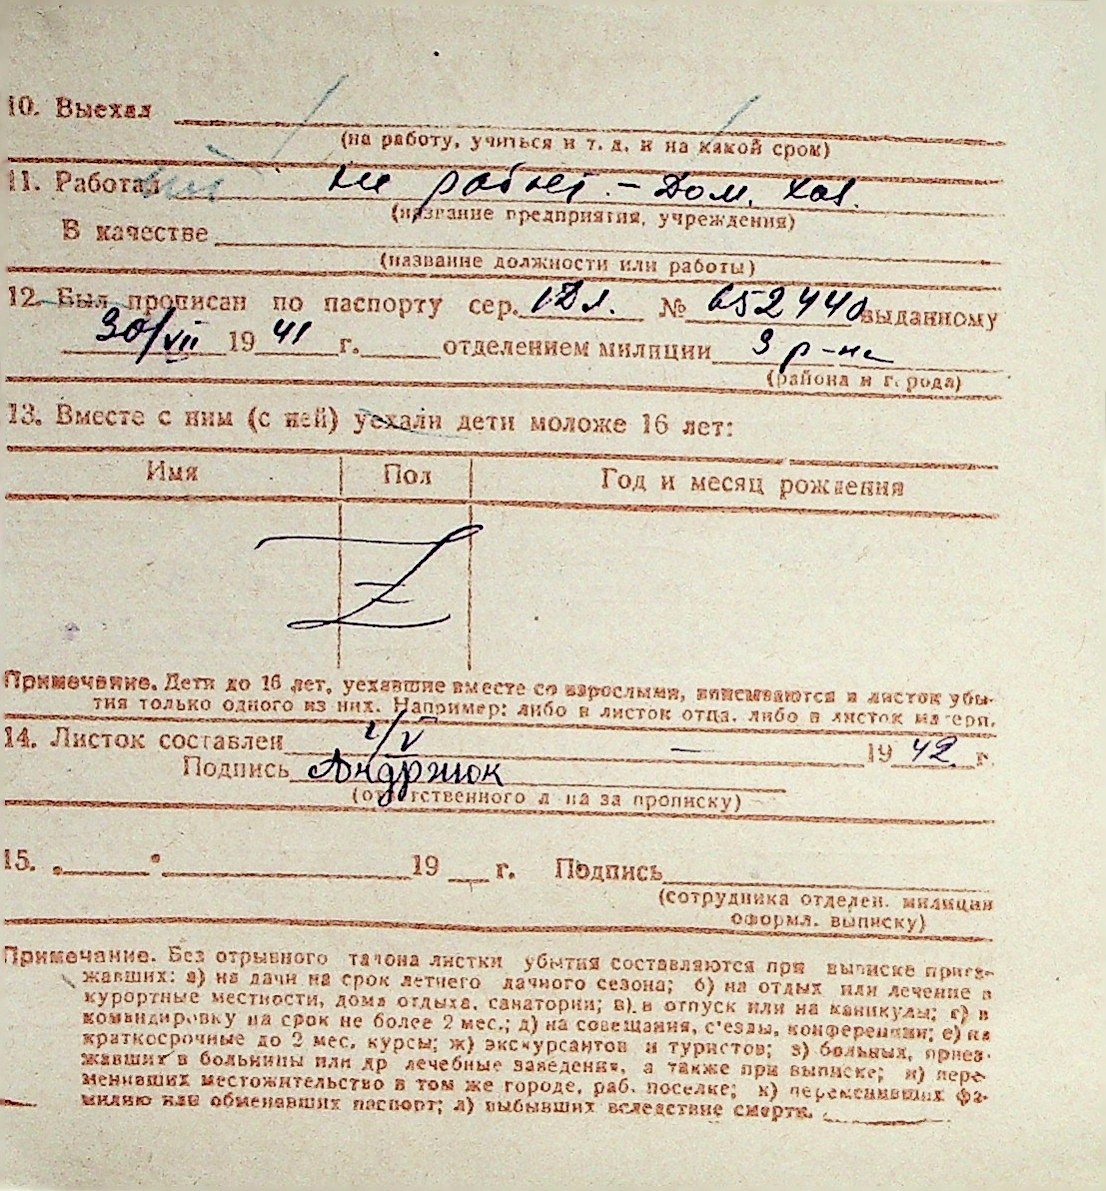 10. Выехал
(на работу, учиться и т. д. и на какой срок)
11. Работал не работ. — Дом. хоз.
(название предприятия, учреждения)
В качестве
(название должности или работы)
12. Был прописан по паспорту сер. № 652440 выданному
30/VII 1941 г. отделением милиции 3 р-на
(района и города)
13. Вместе с ним (с ней) уехали дети моложе 16 лет:
Имя Пол Год и месяц рождения
Z
Примечание. Дети до 16 лет, уехавшие вместе со взрослыми, вписываются в листок убы-
тия только одного из них. Например: либо в листок отца, либо в листок матери.
14. Листок составлен /V — 1942 г.
Подпись Андрюк
(ответственного л на за прописку)
15. „ " 19 г. Подпись
(сотрудника отделен. милиции
оформл. выписку)
Примечание. Без отрывного талона листки убытия составляются при выписке приез-
жавших: а) на дачи на срок летнего дачного сезона; б) на отдых или лечение в
курортные местности, дома отдыха, санатории; в) в отпуск или на каникулы; г) в
командировку на срок не более 2 мес.; д) на совещания, с'езды, конференции; е) на
краткосрочные до 2 мес. курсы; ж) экскурсантов и туристов; з) больных, приез-
жавших в больницы или др лечебные заведения, а также при выписке; и) пере-
менивших местожительство в том же городе, раб. поселке; к) переменивших фа-
милию или обменавших паспорт; л) выбывших вследствие смерти.